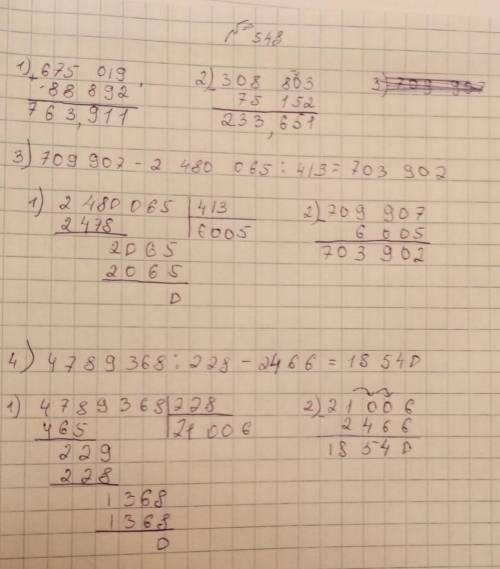 № 548
1) 675 019 2) 308 803
+ 88 892 - 75 152
763,911 233,651
3) 709 907 - 2 480 065 : 413 = 703 902
1) 2 480 065 | 413 2) 709 907
2 478 6005 - 6 005
2065 703 902
2065
0
4) 4789368 : 228 - 2466 = 18 540
1) 4789368 | 228 2) 21 006
465 21 006 - 2 466
229 18 540
228
1368
1368
0